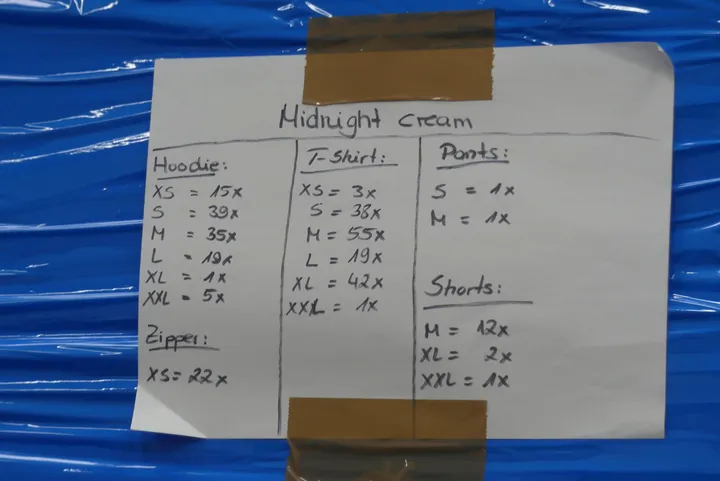 Midnight cream
Hoodie:
XS = 15x
S = 39x
M = 35x
L = 19x
XL = 1x
XXL = 5x
Zipper:
XS = 22x
T-Shirt:
XS = 3x
S = 38x
M = 55x
L = 19x
XL = 42x
XXL = 1x
Pants:
S = 1x
M = 1x
Shorts:
M = 12x
XL = 2x
XXL = 1x